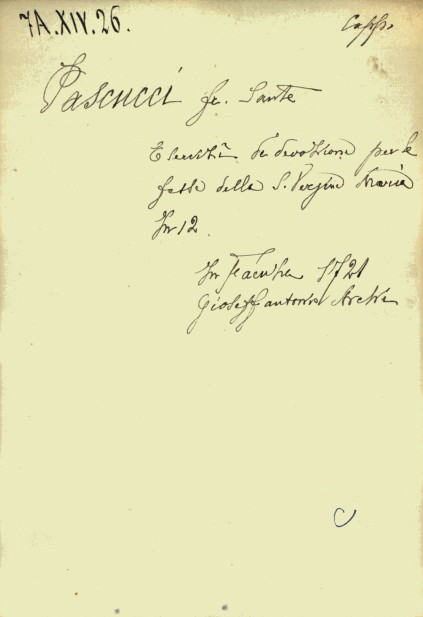 7A.XIV.26.
Capp.
Pascucci fr. Sante
Esercitii di devozione per le
feste della S. Vergine Maria
In 12
In Faenza 1721
Gioseffantonio Archi
C